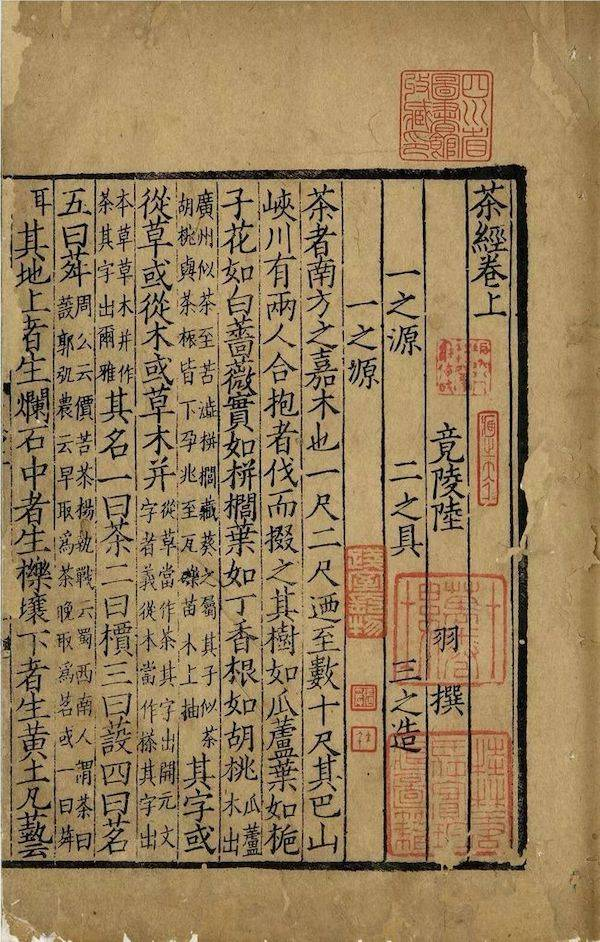 四川省圖書館收藏印
茶經卷上
竟陵陸 羽 撰
一之源 二之具 三之造
一之源
茶者南方之嘉木也一尺二尺迺至數十尺其巴山
峽川有兩人合抱者伐而掇之其樹如瓜蘆葉如梔
子花如白薔薇實如栟櫚葉如丁香根如胡桃瓜蘆木出
廣州似茶至苦澁栟櫚藏葵之屬其子似茶胡桃與茶根皆下孕兆至瓦礫苗木上抽其字或
從草或從木或草木并從草當作茶其字出開元文字者義從木當作搽其字出
本草草木并作茶其字出爾雅其名一曰茶二曰檟三曰蔎四曰茗
五曰荈周公云檟苦茶楊執戟云蜀西南人謂茶曰蔎郭弘農云早取爲茶晚取爲茗或一曰荈
耳其地上者生爛石中者生櫟壤下者生黃土凡藝